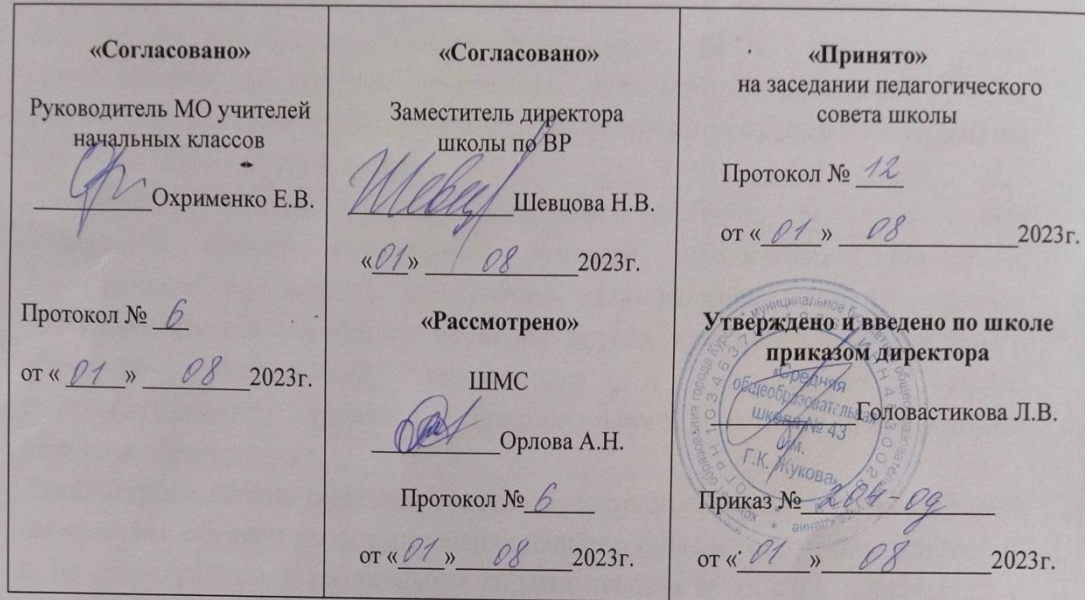 «Согласовано»
Руководитель МО учителей
начальных классов
Охрименко Е.В.
Протокол № 6
от «01» 08 2023г.
«Согласовано»
Заместитель директора
школы по ВР
Шевцова Н.В.
«01» 08 2023г.
«Рассмотрено»
ШМС
Орлова А.Н.
Протокол № 6
от «01» 08 2023г.
«Принято»
на заседании педагогического
совета школы
Протокол № 12
от «01» 08 2023г.
Утверждено и введено по школе
приказом директора
Головастикова Л.В.
Приказ № 204-од
от «01» 08 2023г.
«Средняя
общеобразовательная
школа № 43
им.
Г.К. Жукова»